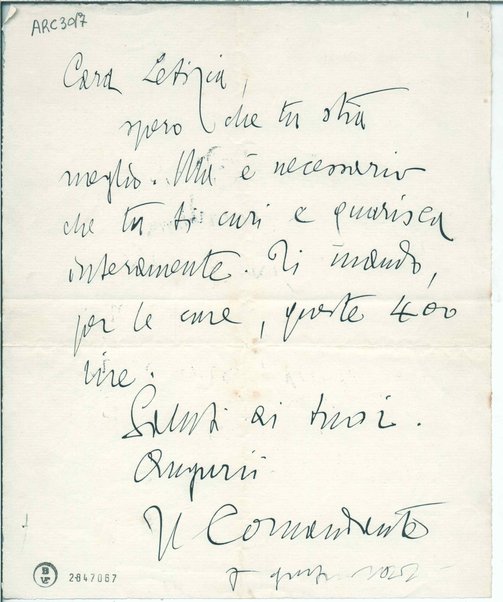 ARC30/7
Cara Letizia,
spero che tu stia
meglio. Ma è necessario
che tu ti curi e guarisca
interamente. Ti mando,
per le cure, queste 400
lire.
Saluti ai tuoi.
Auguri
Il Comandante
BV
2847067